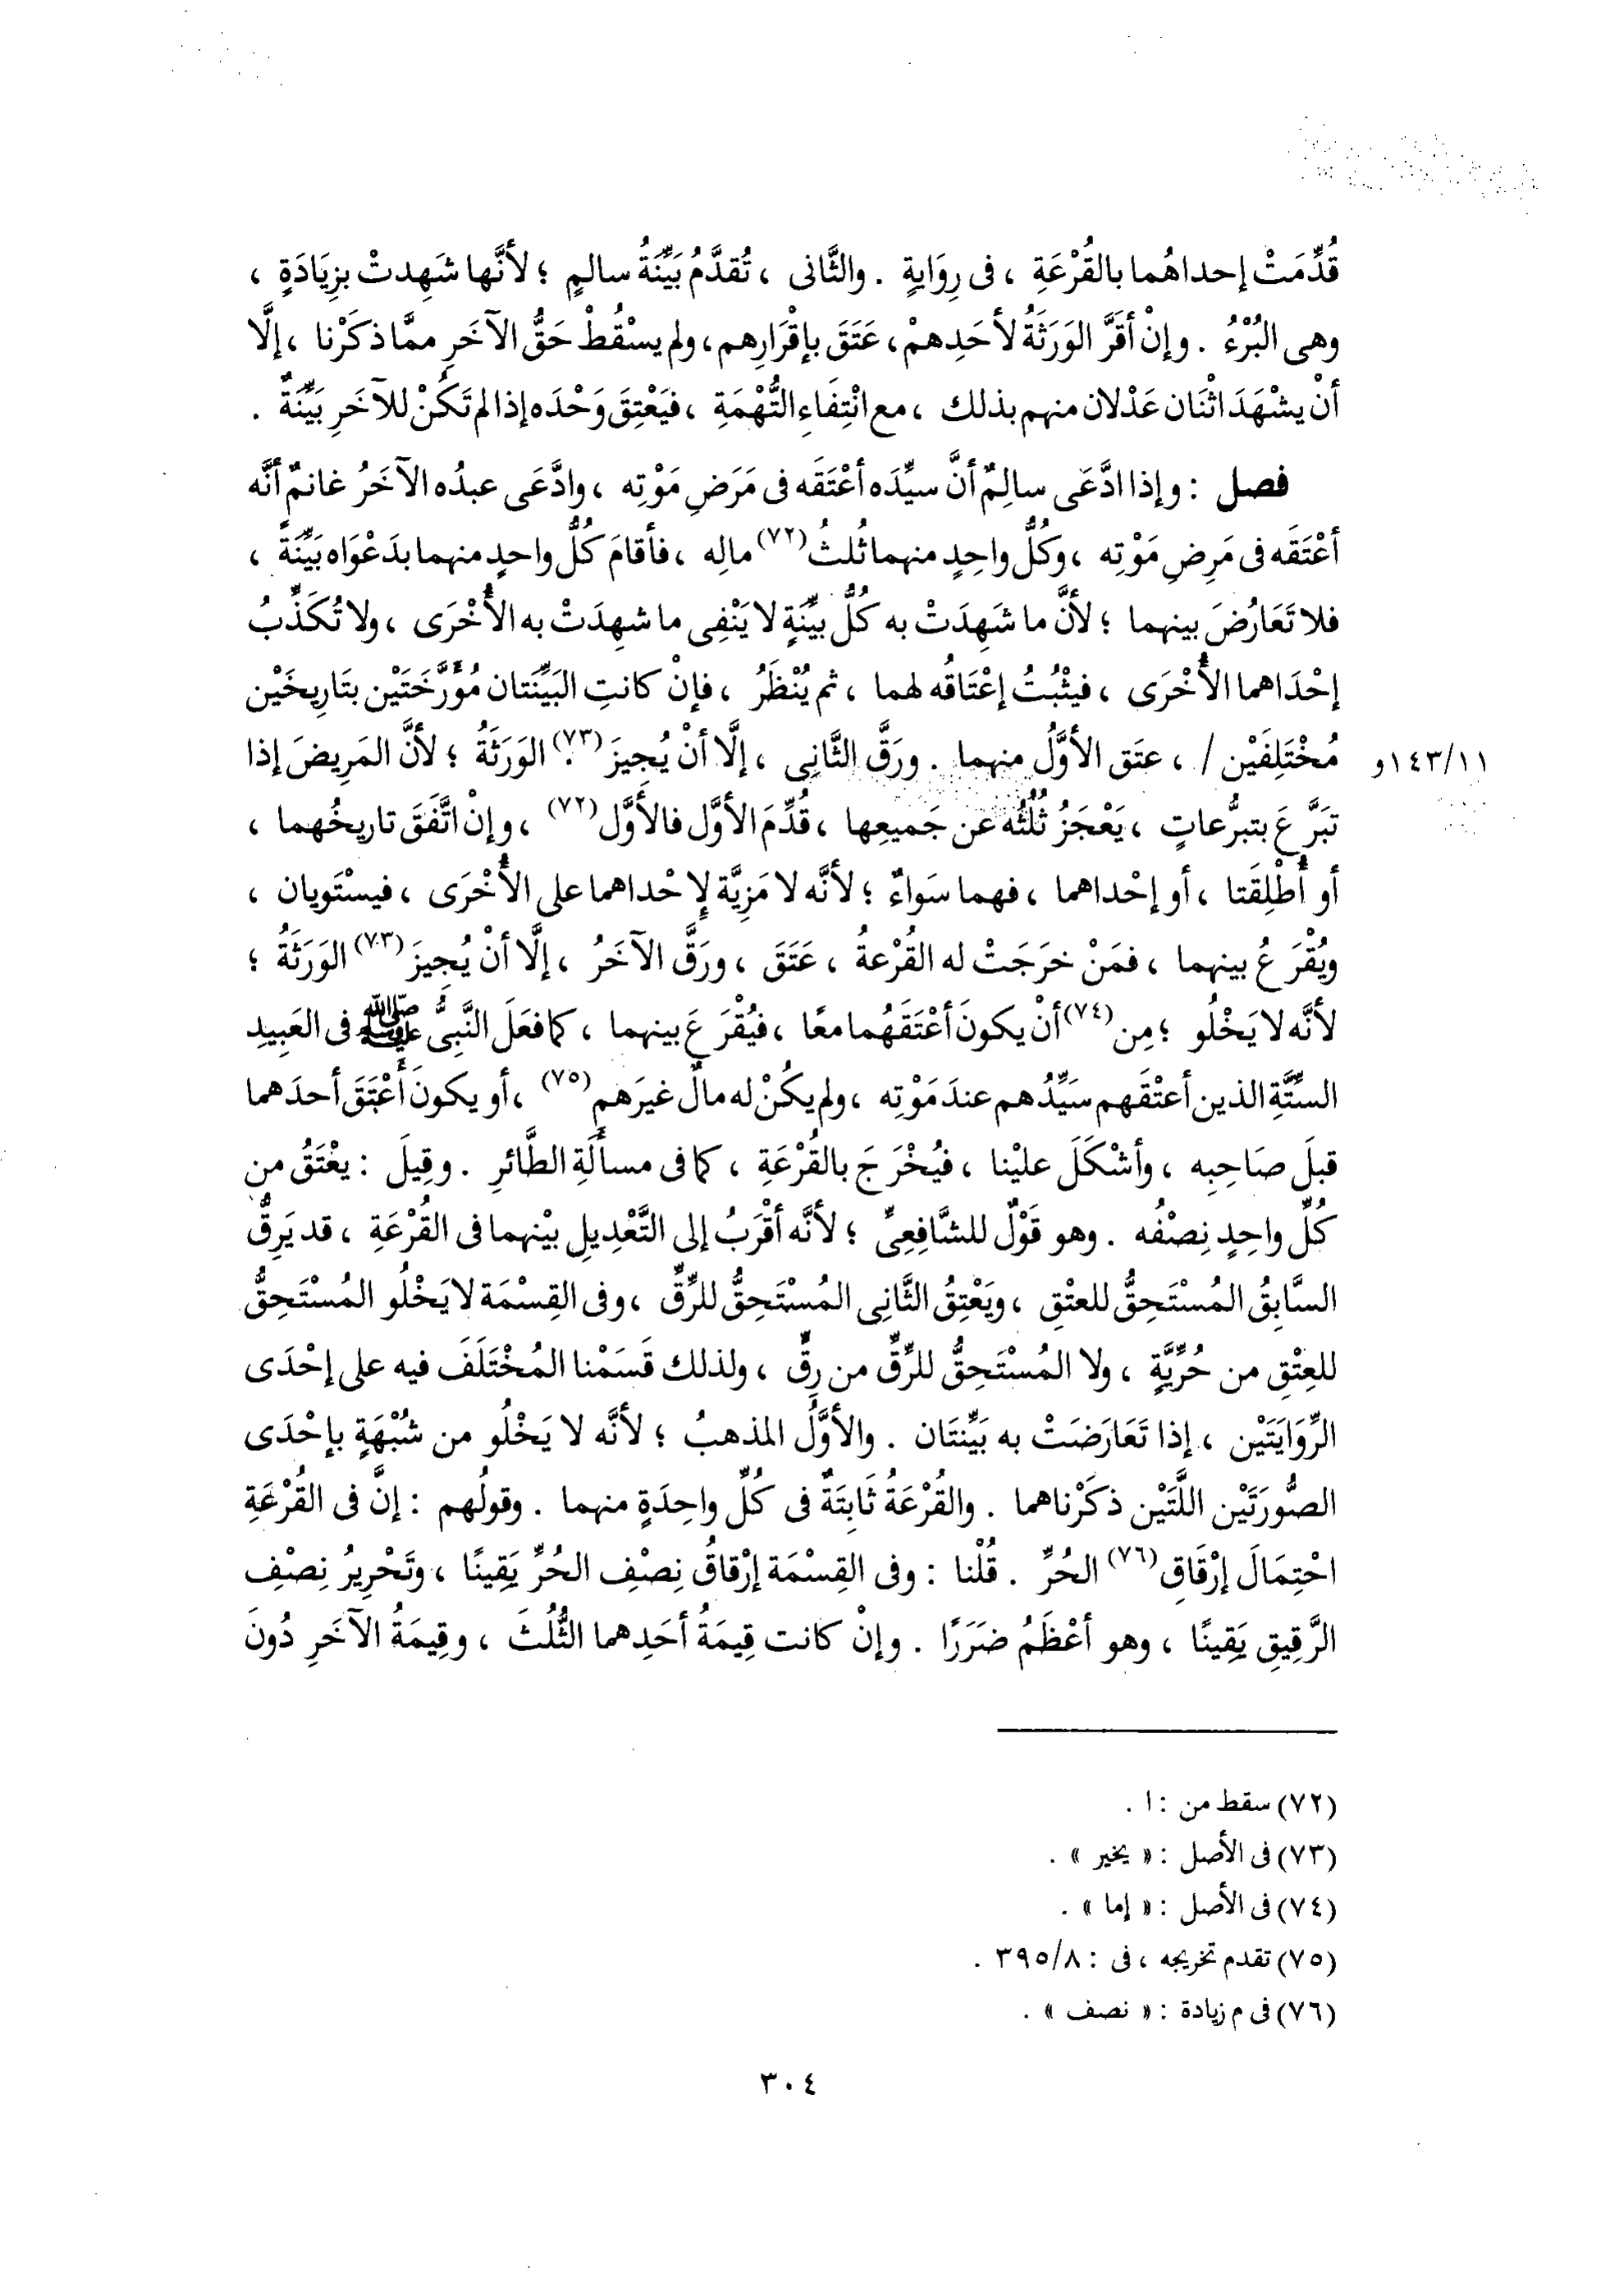 قُدِّمَتْ إحداهُما بالقُرْعَةِ ، فى رِوَايةٍ . والثَّانى ، تُقدَّمُ بَيِّنَةُ سالمٍ ؛ لأنَّها شَهِدتْ بزِيَادَةٍ ،
وهى البُرْءُ . وإنْ أقَرَّ الوَرَثَةُ لأحَدِهمْ ، عَتَقَ بإقْرَارِهم ، ولم يسْقُطْ حَقُّ الآخَرِ ممَّا ذكَرْنا ، إلَّا
أنْ يشْهَدَ اثْنَان عَدْلان منهم بذلك ، مع انْتِفَاءِ التُّهْمَةِ ، فيَعْتِقَ وَحْدَه إذا لم تَكُنْ للآخَرِ بَيِّنَةٌ .
فصل : وإذا ادَّعَى سالِمٌ أنَّ سيِّدَه أعْتَقَه فى مَرَضِ مَوْتِه ، وادَّعَى عبدُه الآخَرُ غانمٌ أنَّه
أعْتَقَه فى مَرِضِ مَوْتِه ، وكُلُّ واحِدٍ منهما ثُلثُ (٧٢) مالِه ، فأقامَ كُلُّ واحِدٍ منهما بدَعْوَاه بَيِّنَةً ،
فلا تَعَارُضَ بينهما ؛ لأنَّ ما شَهِدَتْ به كُلُّ بيِّنَةٍ لا يَنْفِى ما شهِدَتْ به الأُخْرَى ، ولا تُكَذِّبُ
إحْدَاهما الأُخْرَى ، فيثْبُتُ إعْتَاقُه لهما ، ثم يُنْظَرُ ، فإنْ كانتِ البَيِّنَتان مُؤَرَّخَتَيْن بتَارِيخَيْن
مُخْتَلِفَيْن / ، عتَق الأوَّلُ منهما . ورَقَّ الثَّانِى ، إلَّا أنْ يُجِيزَ (٧٣) الوَرَثَةُ ؛ لأنَّ المَرِيضَ إذا
١٤٣/١١و
تبَرَّعَ بتبرُّعاتٍ ، يَعْجَزُ ثُلُثُه عن جَميعِها ، قُدِّمَ الأوَّل فالأوَّل (٧٢) ، وإنْ اتَّفَقَ تاريخُهما ،
أو أُطْلِقَتا ، أو إحْداهما ، فهما سَواءٌ ؛ لأنَّه لا مَزِيَّة لإحْداهما على الأُخْرَى ، فيسْتَويان ،
ويُقْرَعُ بينهما ، فمَنْ خرَجَتْ له القُرْعةُ ، عَتَقَ ، ورَقَّ الآخَرُ ، إلَّا أنْ يُجِيزَ (٧٣) الوَرَثَةُ ؛
لأنَّه لا يَخْلُو ؛ مِن (٧٤) أنْ يكونَ أعْتَقَهُما معًا ، فيُقْرَعَ بينهما ، كما فعَلَ النَّبِىُّ ﷺ فى العَبِيدِ
السِّتَّةِ الذين أعتْقَهم سَيِّدُهم عندَ مَوْتِه ، ولم يكُنْ له مالٌ غيرَهم (٧٥) ، أو يكونَ أَعْتَقَ أحدَهما
قبلَ صَاحِبِه ، وأشْكَلَ عليْنا ، فيُخْرَجَ بالقُرْعَةِ ، كما فى مسألَةِ الطَّائرِ . وقِيلَ : يعْتَقُ من
كُلِّ واحِدٍ نِصْفُه . وهو قَوْلٌ للشَّافِعِىِّ ؛ لأنَّه أقْرَبُ إلى التَّعْدِيلِ بيْنهما فى القُرْعَةِ ، قد يَرِقُّ
السَّابِقُ المُسْتَحِقُّ للعتْقِ ، ويَعْتِقُ الثَّانِى المُسْتَحِقُّ للرِّقِّ ، وفى القِسْمَة لا يَخْلُو المُسْتَحِقُّ
للعِتْقِ من حُرِّيَّةٍ ، ولا المُسْتَحِقُّ للرِّقِّ من رِقٍّ ، ولذلك قَسَمْنا المُخْتَلَفَ فيه على إحْدَى
الرِّوَايَتَيْن ، إذا تَعَارَضَتْ به بَيِّنَتَان . والأوَّلُ المذهبُ ؛ لأنَّه لا يَخْلُو من شُبْهَةٍ بإحْدَى
الصُّورَتَيْن اللَّتَيْن ذكَرْناهما . والقُرْعَةُ ثَابِتَةٌ فى كُلِّ واحِدَةٍ منهما . وقولُهم : إنَّ فى القُرْعَةِ
احْتِمَالَ إرْقَاقِ (٧٦) الحُرِّ . قُلْنا : وفى القِسْمَة إرْقاقُ نِصْفِ الحُرِّ يَقِينًا ، وتَحْرِيرُ نِصْفِ
الرَّقِيقِ يَقِينًا ، وهو أعْظَمُ ضَرَرًا . وإنْ كانت قِيمَةُ أحَدِهما الثُّلُثَ ، وقِيمَةُ الآخَرِ دُونَ
(٧٢) سقط من : ا .
(٧٣) فى الأصل : « يخير » .
(٧٤) فى الأصل : « إما » .
(٧٥) تقدم تخريجه ، فى : ٣٩٥/٨ .
(٧٦) فى م زيادة : « نصف » .
٣٠٤